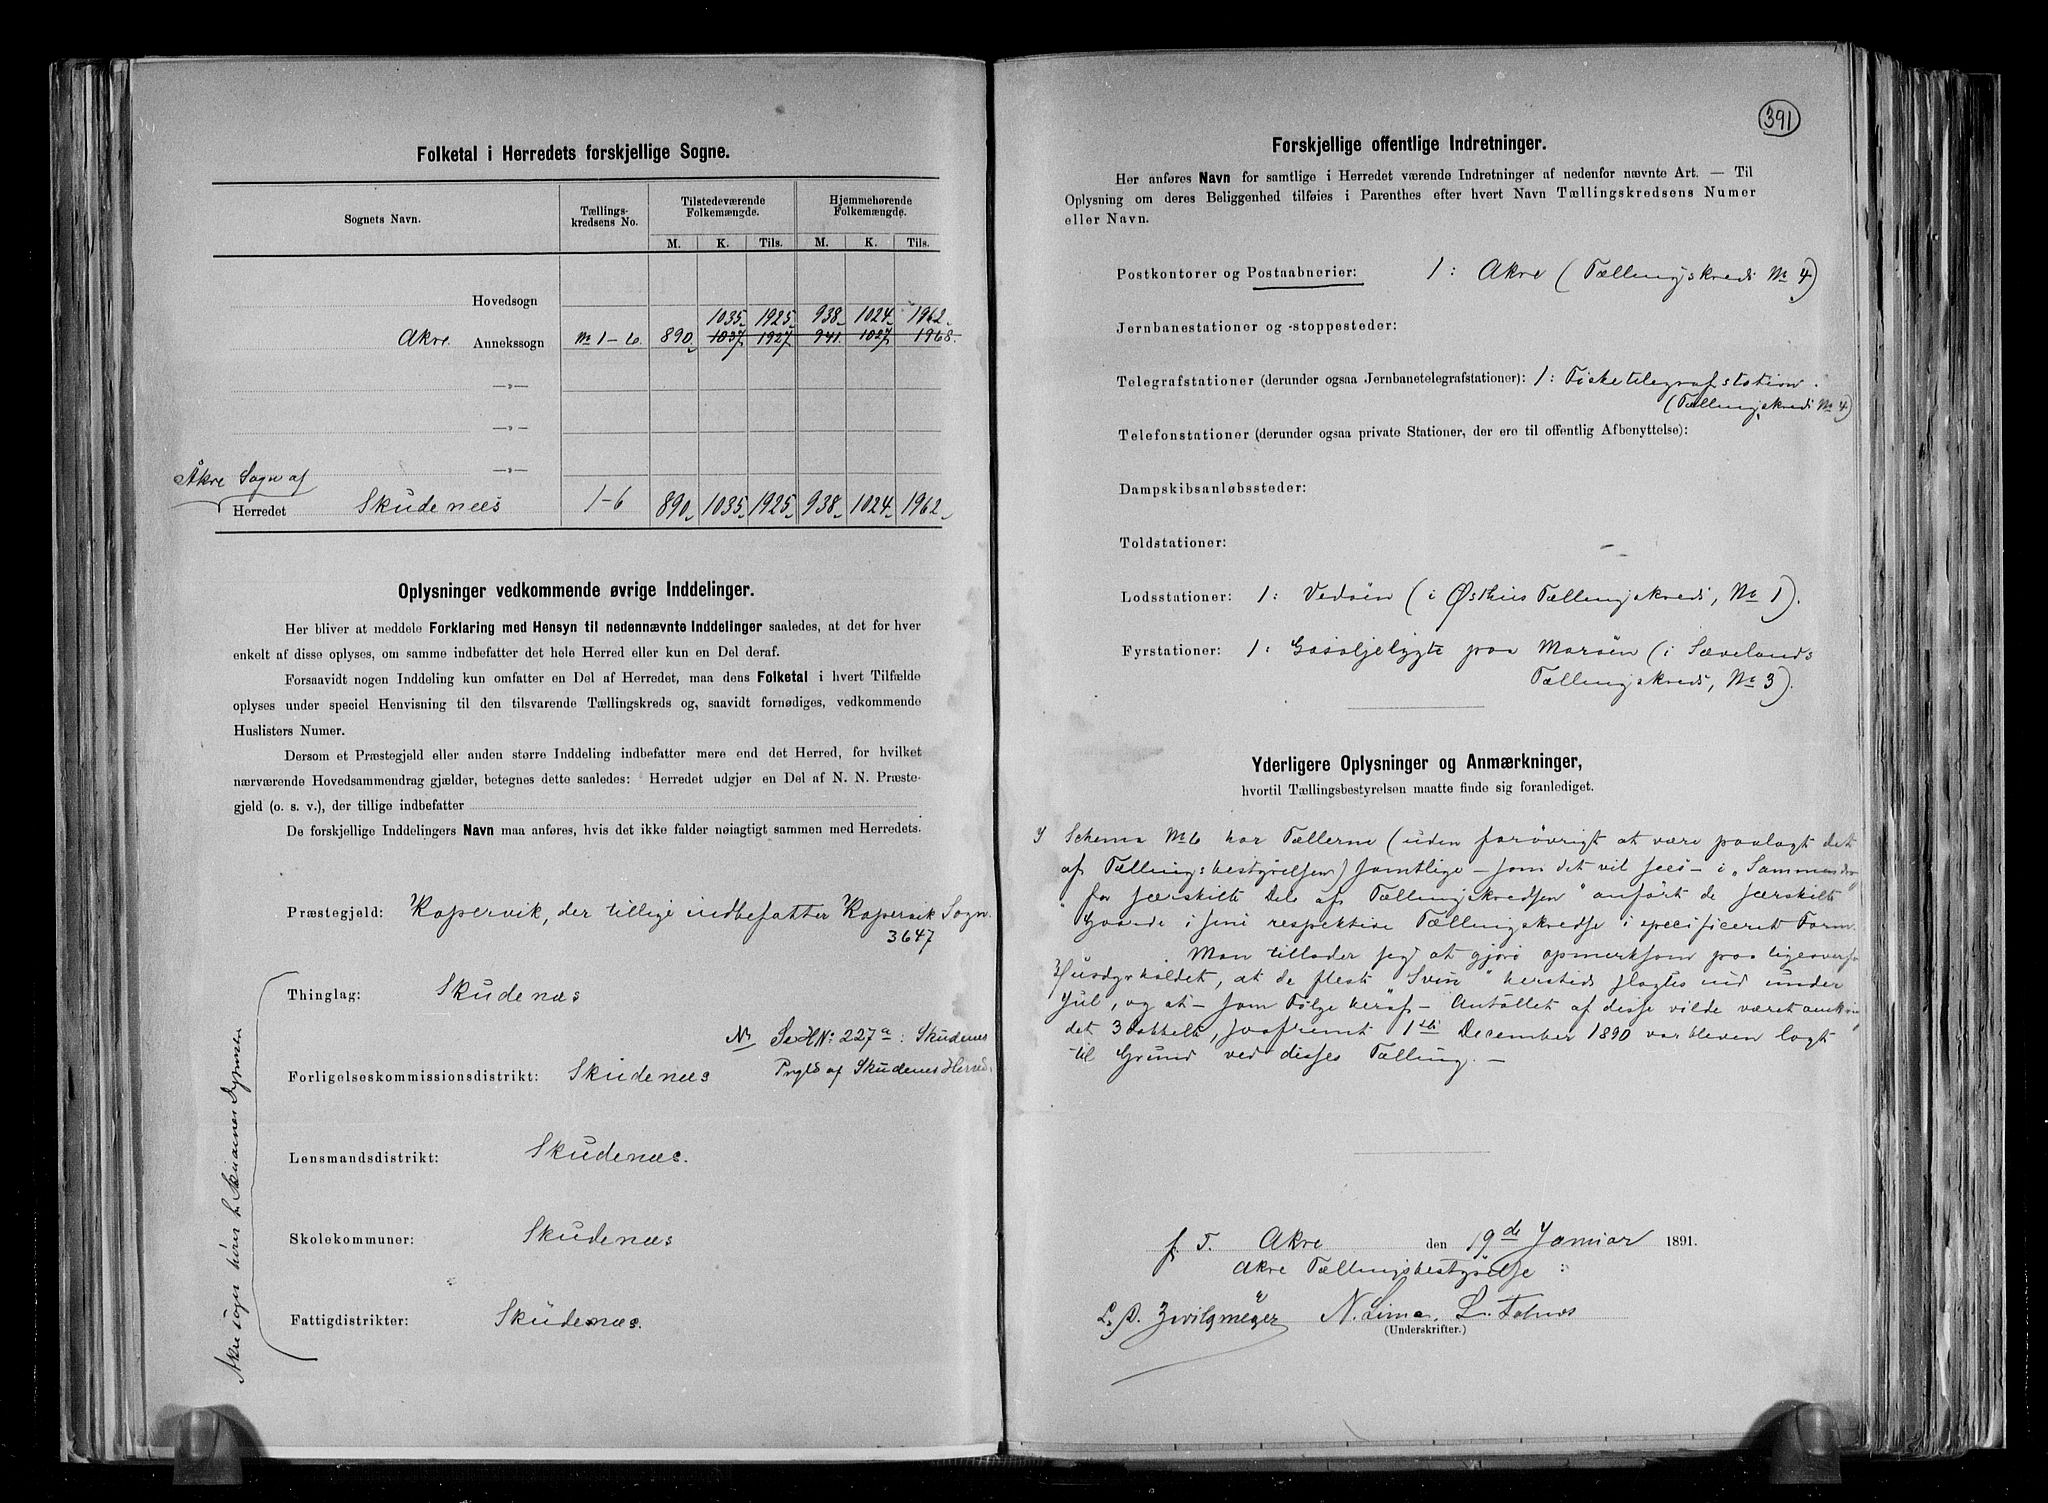 Folketal i Herredets forskjellige Sogne.
Sognets Navn. Tællings-kredsens No. Tilstedeværende Folkemængde. Hjemmehørende Folkemængde.
M. K. Tils. M. K. Tils.
Hovedsogn
1035 1925 938 1024 1962
Akre Annekssogn No 1-6. 890 1037 1927 941 1027 1968.
—„—
—„—
Åkre Sogn af —„—
Herredet Skudenæs 1-6 890 1035 1925 938 1024 1962
Oplysninger vedkommende øvrige Inddelinger.
Her bliver at meddele Forklaring med Hensyn til nedennævnte Inddelinger saaledes, at det for hver
enkelt af disse oplyses, om samme indbefatter det hele Herred eller kun en Del deraf.
Forsaavidt nogen Inddeling kun omfatter en Del af Herredet, maa dens Folketal i hvert Tilfælde
oplyses under speciel Henvisning til den tilsvarende Tællingskreds og, saavidt fornødiges, vedkommende
Huslisters Numer.
Dersom et Præstegjeld eller anden større Inddeling indbefatter mere end det Herred, for hvilket
nærværende Hovedsammendrag gjælder, betegnes dette saaledes: Herredet udgjør en Del af N. N. Præste-
gjeld (o. s. v.), der tillige indbefatter
De forskjellige Inddelingers Navn maa anføres, hvis det ikke falder nøiagtigt sammen med Herredets.
Præstegjeld: Kopervik, der tillige indbefatter Kopervik Sogn.
3647
Thinglag: Skudenæs
Skudenes
Forligelseskommissionsdistrikt: Skudenæs
Skudenes Herred.
Lensmandsdistrikt: Skudenæs.
Skolekommuner: Skudenæs
Fattigdistrikter: Skudenæs.
391
Forskjellige offentlige Indretninger.
Her anføres Navn for samtlige i Herredet værende Indretninger af nedenfor nævnte Art. — Til
Oplysning om deres Beliggenhed tilføies i Parenthes efter hvert Navn Tællingskredsens Numer
eller Navn.
Postkontorer og Postaabnerier: 1: Akre (Tællingskreds No 4)
Jernbanestationer og -stoppesteder:
Telegrafstationer (derunder ogsaa Jernbanetelegrafstationer): 1: Fisketelegrafstation.
(Tællingskreds No 4)
Telefonstationer (derunder ogsaa private Stationer, der ere til offentlig Afbenyttelse):
Dampskibsanløbssteder:
Toldstationer:
Lodsstationer: 1: Vedöen (i Østhus Tællingskreds, No 1).
Fyrstationer: 1: Gasoljelygte paa Maröen (i Sævelands
Tællingskreds, No 3).
Yderligere Oplysninger og Anmærkninger,
hvortil Tællingsbestyrelsen maatte finde sig foranlediget.
I Schema No 6 har Tællerne (uden forövrigt at være paalagt det
af Tællingsbestyrelsen) samtlige – som det vil sees – i „Sammendrag
for særskilte Dele af Tællingskredsen" anført de særskilte
Gaarde i sine respektive Tællingskredse i specificeret Form.
Man tillader sig at gjöre opmerksom paa ligeoverfor
Husdyrholdet, at de fleste „Svin" hersteds slagtes ind under
Jul, og at – som Fölge heraf – Antallet af disse vilde været omkring
det 3 dobbelte, saafremt 1ste December 1890 var bleven lagt
til Grund ved disses Tælling. –
Akre den 19de Januar 1891.
Akre Tællingsbestyrelse:
Zwilgmeyer N. Lima.
(Underskrifter.)